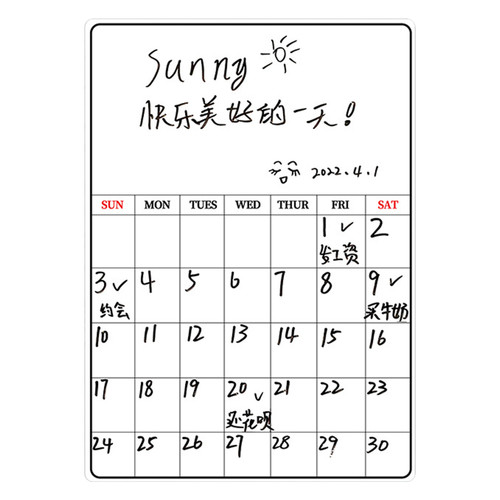 Sunny
快乐美好的一天!
2022.4.1
SUN MON TUES WED THUR FRI SAT
1 2
发工资
3 4 5 6 7 8 9
约会 买牛奶
10 11 12 13 14 15 16
17 18 19 20 21 22 23
还花呗
24 25 26 27 28 29 30